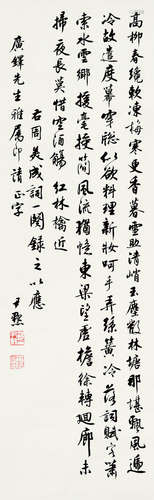 高柳春纔軟凍梅寒更香暮雪助清峭玉塵散林塘那堪飄風遞
冷故遣度幕穿窗似欲料理新妝呵手弄絲簧冷落詞賦客蕭
索水雲鄉援毫授簡風流猶憶東梁望虛簷徐轉迴廊未
掃夜長莫惜空酒觴 紅林檎近
右周美成詞一闋錄之以應
廣鐸先生雅屬即請正字
尹默